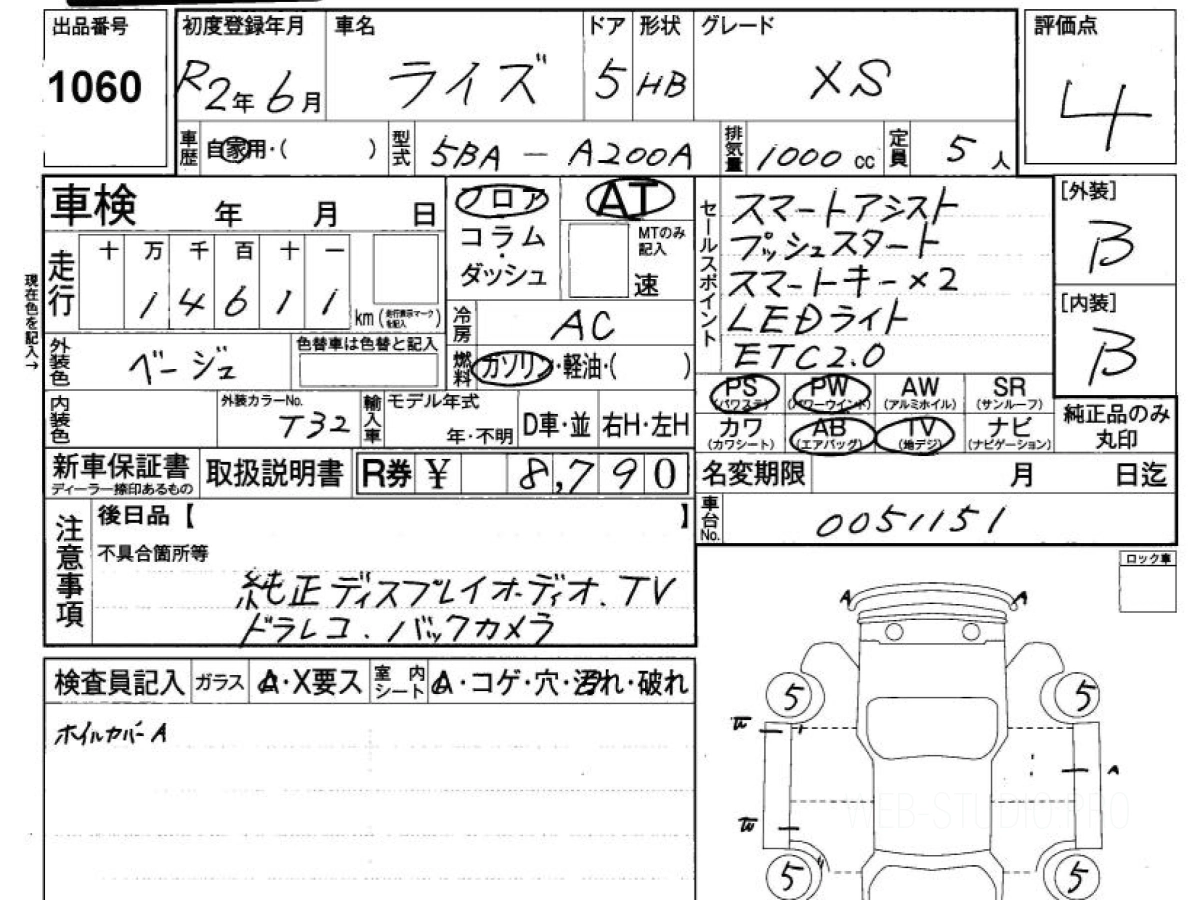 出品番号
1060
初度登録年月 車名 ドア 形状 グレード 評価点
R2年 6月 ライズ 5 HB XS 4
車歴 自家用・( ) 型式 5BA - A200A 排気量 1000 cc 定員 5 人
車検 年 月 日
フロア
コラム
・
ダッシュ
AT
MTのみ
記入
速
セールスポイント
スマートアシスト
プッシュスタート
スマートキー×2
LEDライト
ETC2.0
[外装]
B
[内装]
B
現在色を記入→
走行 十 万 千 百 十 一
1 4 6 1 1 km (走行表示マークを記入)
冷房 AC
燃料 ガソリン・軽油・( )
外装色 ベージュ 色替車は色替と記入
内装色 外装カラーNo. T32 輸入車 モデル年式 年・不明 D車・並 右H・左H
PS (パワステ) PW (パワーウインド) AW (アルミホイル) SR (サンルーフ)
カワ (カワシート) AB (エアバッグ) TV (地デジ) ナビ (ナビゲーション)
純正品のみ
丸印
新車保証書 ディーラー捺印あるもの 取扱説明書 R券 ¥ 8,790
名変期限 月 日迄
車台No. 0051151
注意事項
後日品【 】
不具合箇所等
純正ディスプレイオーディオ、TV
ドラレコ、バックカメラ
ロック車
検査員記入 ガラス A・X要ス 室内シート A・コゲ・穴・汚れ・破れ
ホイルカバーA
A A
5 5
W
A
W
5 5
WEB-STUDIO.PRO